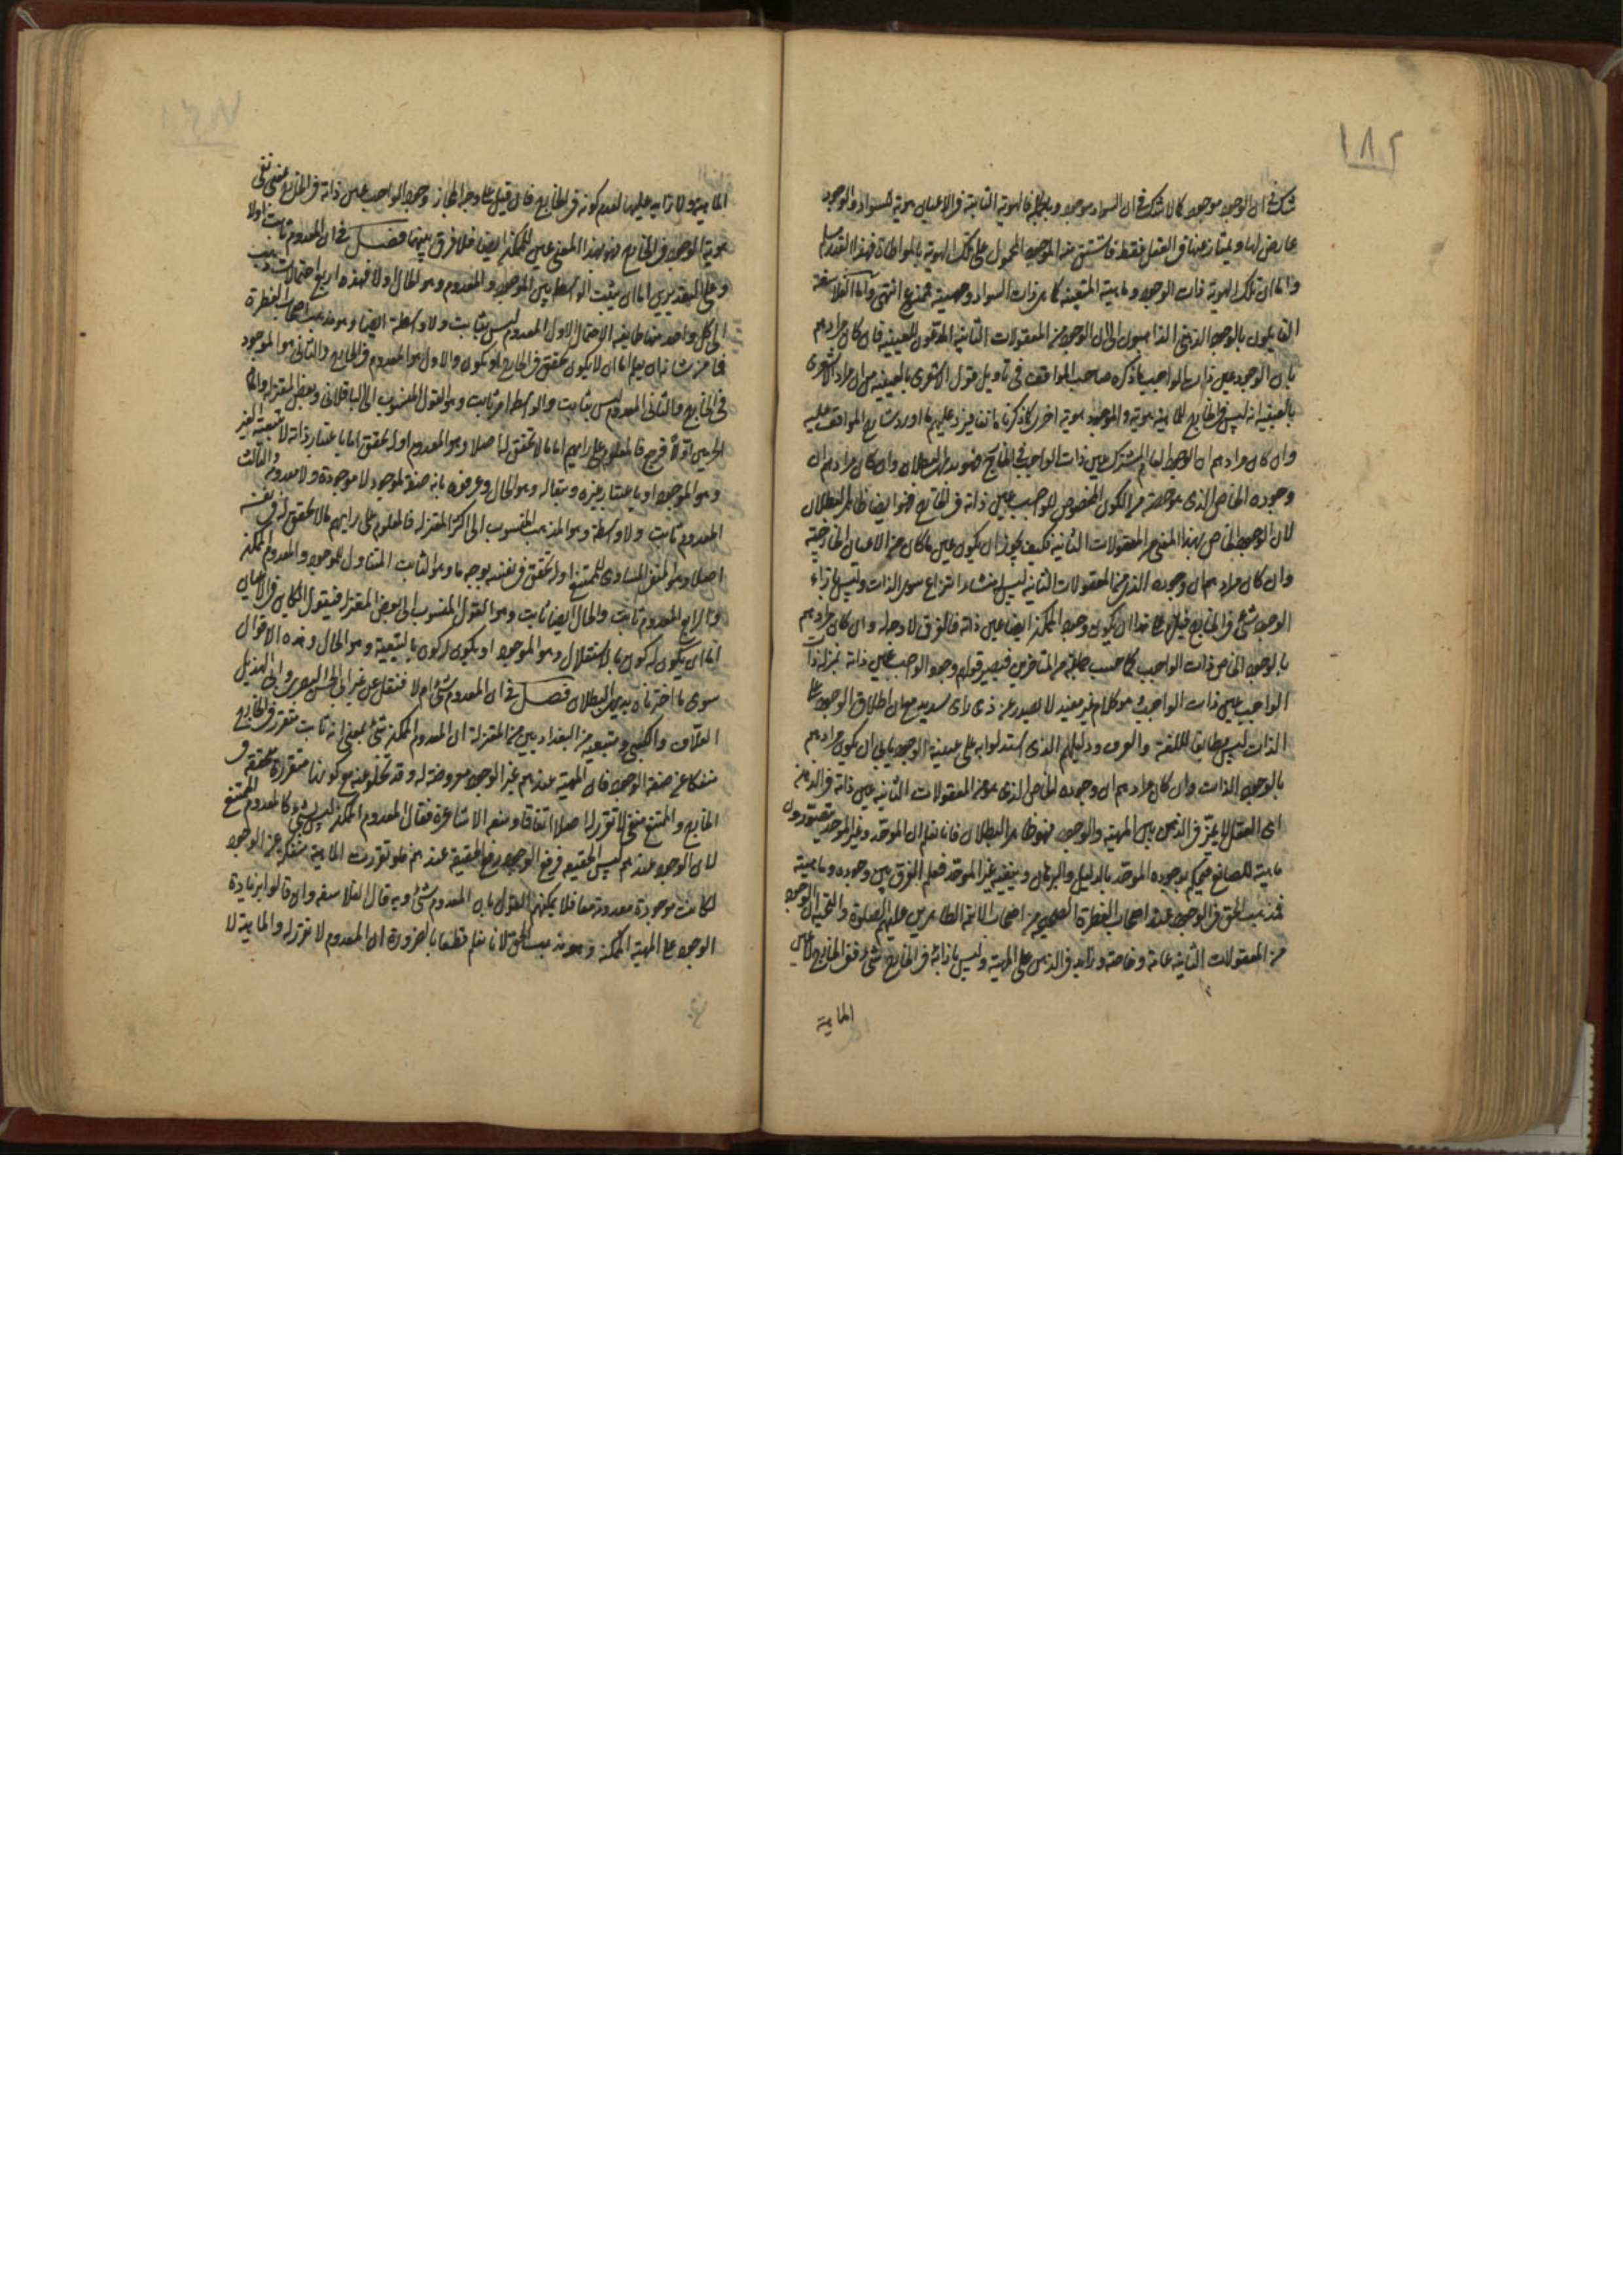 ١٨٢
شك في ان الوجود موجود كما لا شك في ان السواد موجود وبالجملة فالهوية الثابتة في الاعيان هوية السواد والوجود
عارض لها ويمتاز عنها في العقل فقط فاشتق منه الموجود المحمول على تلك الهوية بالمواطاة فهذا القدر مسلم
واما ان تلك الهوية ذات الوجود وماهيته المتعينة كما هو ذات السواد وحصته فممنوع انتهى واما الفلاسفة
القايلون بالوجود الذهني الذاهبون الى ان الوجود من المعقولات الثانية المدعون للعينية فان كان مرادهم
بان الوجود عين ذات الواجب ما ذكره صاحب المواقف في تاويل قول الاشعري بالعينية من ان مراد الاشعري
بالعينية انه ليس في الخارج للماهية هوية وللوجود هوية اخرى كما ذكرنا آنفا فيرد عليهم ما اورد شارح المواقف عليه
وان كان مرادهم ان الوجود العام المشترك عين ذات الواجب في الخارج فهو بديهي البطلان وان كان مرادهم ان
وجوده الخاص الذي هو حصة من الكون المخصوص للواجب عين ذاته في الخارج فهو ايضا ظاهر البطلان
لان الوجود الخاص بهذا المعنى من المعقولات الثانية فكيف يجوز ان يكون عين ما كان من الاعيان الخارجية
وان كان مرادهم ان وجوده الذي من المعقولات الثانية ليس منشاء انتزاع سوى الذات وليس بازاء
الوجود شيء في الخارج فيلزم على هذا ان يكون وجود الممكن ايضا عين ذاته فالفرق لا وجه له وان كان مرادهم
بالوجود الخاص ذات الواجب كما حسب جماعة من المتاخرين فيصير قولهم وجود الواجب عين ذاته بمنزلة ذات
الواجب عين ذات الواجب وهو كلام غير مفيد لا يصدر عن ذي راي سديد مع ان اطلاق الوجود على
الذات ليس مطابقا للغة والعرف ودليلهم الذي استدلوا به على عينية الوجود يابى ان يكون مرادهم
بالوجود الذات وان كان مرادهم ان وجوده الخاص الذي هو من المعقولات الثانية عين ذاته في الذهن
اي العقل لا يميز في الذهن بين المهية والوجود فهو ظاهر البطلان فانا نعلم ان الموحد وغير الموحد يتصورون
ماهية للصانع فيحكم بوجوده الموحد بالدليل والبرهان وينفيه غير الموحد فعلم الفرق بين وجوده وماهيته
فمذهب الحق في الوجود عند اصحاب الفطرة الصحيحة من اصحاب الائمة الطاهرين عليهم الصلوة والتحية ان الوجود
من المعقولات الثانية عامة وخاصة وزايد في الذهن على المهية وليس بازائه في الخارج شيء ففي الخارج لا عين
الماهية
الماهية ولا زايد عليها لعدم كونه في الخارج فان قيل على وجه المجاز وجود الواجب عين ذاته في الخارج بمعنى نفي
هوية الوجود في الخارج فهو بهذا المعنى عين للممكن ايضا فلا فرق بينهما فصل في ان المعدوم ثابت اولا
وعلى التقديرين اما ان يثبت الواسطة بين الموجود والمعدوم وهو الحال اولا فهذه اربع احتمالات ذهب
الى كل واحد منها طايفة الاحتمال الاول المعدوم ليس بثابت ولا واسطة ايضا وهو مذهب اصحاب الفطرة
فما من شانه ان يعلم اما ان لا يكون له تحقق في الخارج او يكون والاول هو المعدوم في الخارج والثاني هو الموجود
في الخارج والثاني المعدوم ليس بثابت والواسطة امر ثابت وهو القول المنسوب الى الباقلاني وبعض المعتزلة وامام
الحرمين اولا فرجع فالمعلوم على رايهم اما لا تحقق له اصلا وهو المعدوم اوله تحقق اما باعتبار ذاته لا بتبعية الغير
وهو الموجود او باعتبار غيره وتبعا له وهو الحال وعرفوه بانه صفة لموجود لا موجودة ولا معدومة والثالث
المعدوم ثابت ولا واسطة وهو المذهب المنسوب الى اكثر المعتزلة فالمعلوم على رايهم ما لا تحقق له في نفسه
اصلا وهو المنفي المساوي للممتنع اوله تحقق في نفسه بوجه ما وهو الثابت المتناول للموجود والمعدوم الممكن
والرابع المعدوم ثابت والحال ايضا ثابت وهو القول المنسوب الى بعض المعتزلة فيقول الكاين في الاعيان
اما ان يكون له كون بالاستقلال وهو الموجود او يكون له كون بالتبعية وهو الحال وهذه الاقوال
سوى ما اخترناه بديهي البطلان فصل في ان المعدوم شيء ام لا فنقل عن غير ابي الحسن البصري وابي الهذيل
العلاف والكعبي ومتبعيه من البغداديين من المعتزلة ان المعدوم الممكن شيء بمعنى انه ثابت متقرر في الخارج
منفكا عن صفة الوجود فان المهية عندهم غير الوجود معروضة له وقد تخلو عنه مع كونها متقررة متحققة في
الخارج والممتنع منفي لا تقرر له اصلا اتفاقا ومنعه الاشاعرة فقال المعدوم الممكن ليس بشيء كالمعدوم الممتنع
لان الوجود عندهم نفس الحقيقة فرفع الوجود رفع الحقيقة عندهم فلو تقررت الماهية منفكة عن الوجود
لكانت موجودة معدومة معا فلا يمكنهم القول بان المعدوم شيء وبه قال الفلاسفة وان قالوا بزيادة
الوجود على المهية الممكنة وهو مذهب الحق لانا نعلم قطعا بالضرورة ان المعدوم لا تقرر له والماهية لا